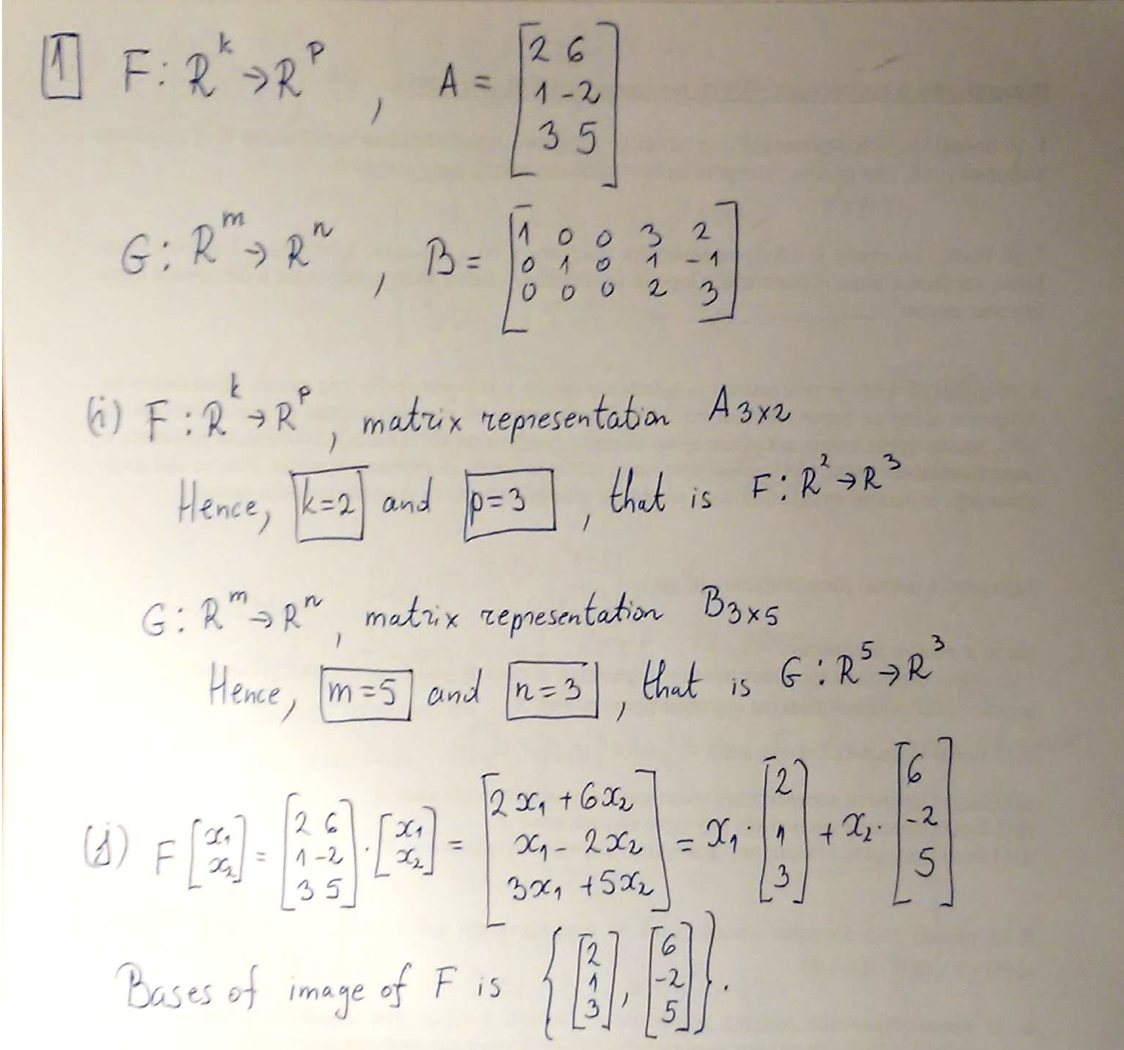 1 F: R^k → R^p, A = [2 6; 1 -2; 3 5]
G: R^m → R^n, B = [1 0 0 3 2; 0 1 0 1 -1; 0 0 0 2 3]
(i) F: R^k → R^p, matrix representation A3×2
Hence, k=2 and p=3, that is F: R^2 → R^3
G: R^m → R^n, matrix representation B3×5
Hence, m=5 and n=3, that is G: R^5 → R^3
(j) F[x1; x2] = [2 6; 1 -2; 3 5] · [x1; x2] = [2x1 + 6x2; x1 - 2x2; 3x1 + 5x2] = x1 · [2; 1; 3] + x2 · [6; -2; 5]
Bases of image of F is {[2; 1; 3], [6; -2; 5]}.